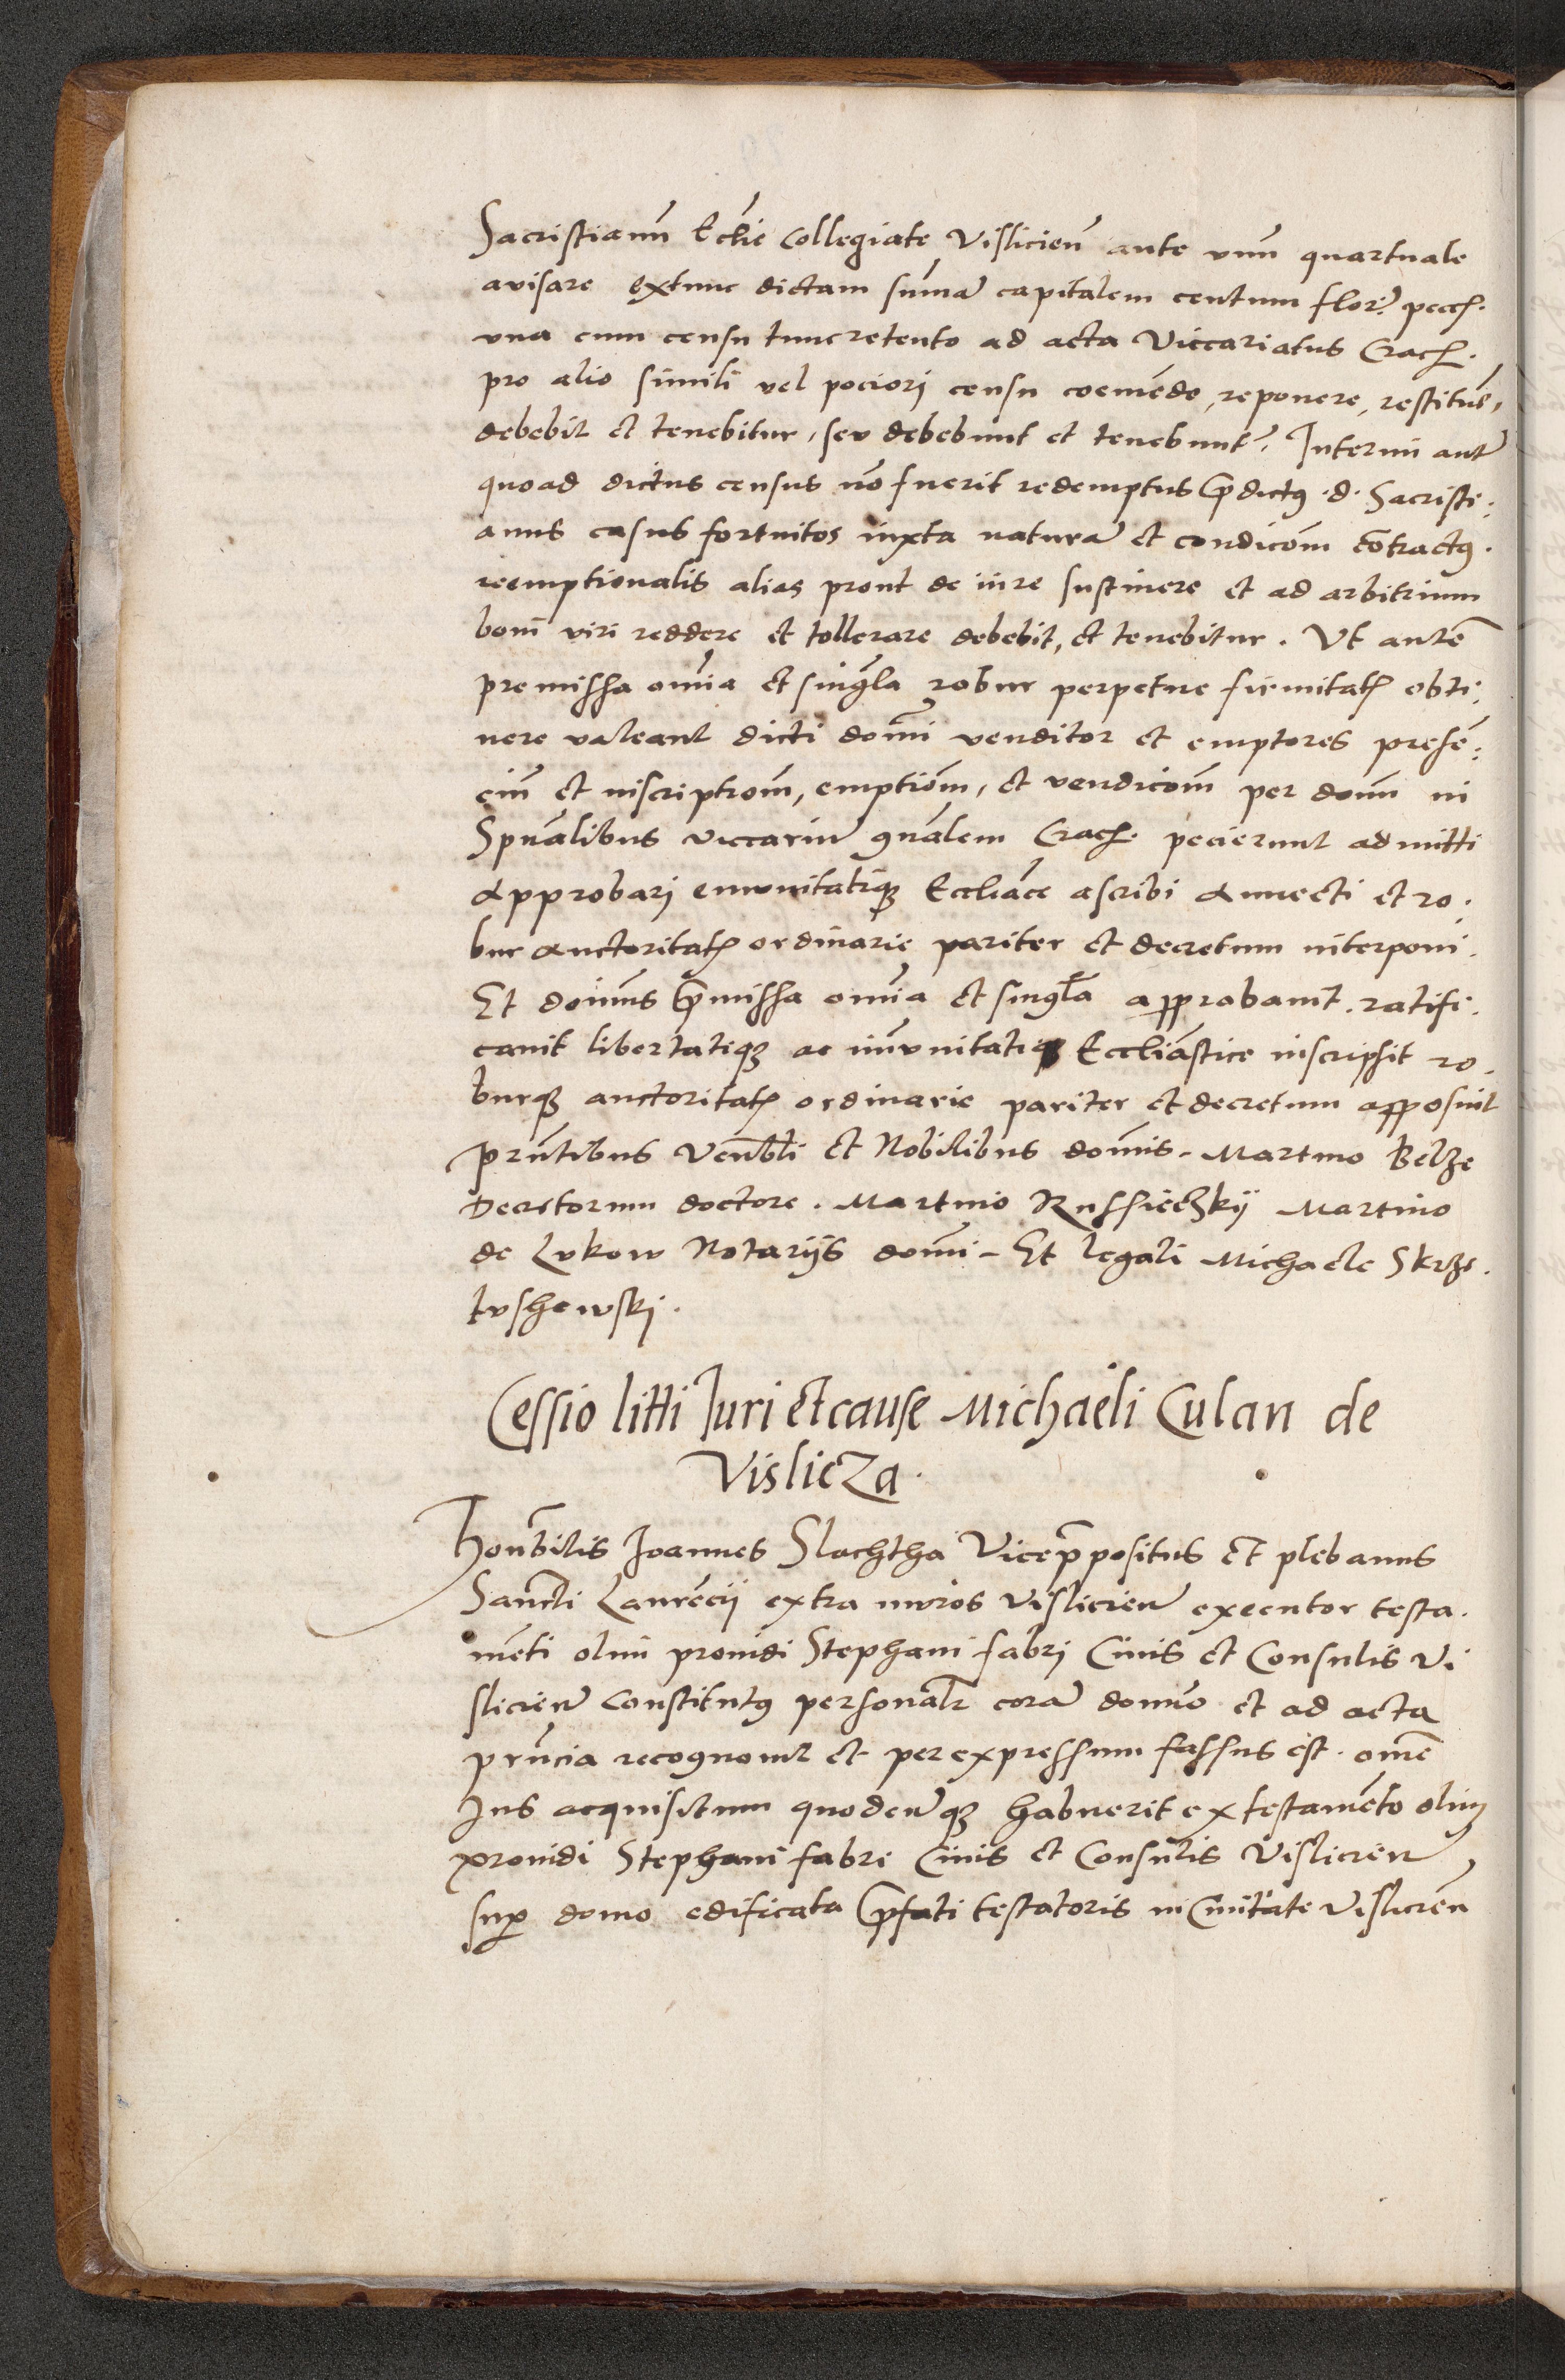 Sacristianu̅ Eccl̅ie Collegiate Vislicien̅ ante vnu̅ quartuale
auisare extunc dictam sum̅a̅ capitalem centum flor̅. pecc.
vna cum censu tunc retento ad acta Viccariatus Crac.
pro alio simili vel pociori censu coeme̅do, reponere, restitue̅,
debebit et tenebitur, seu debebunt et tenebunt̅. Interim aut̅
quoad dictus census no̅ fuerit redemptus p̅dictꝰ .d. Sacristi:
anus casus fortuitos iuxta natura̅ et condico̅m co̅tractꝰ.
reemptionalis alias prout de iure sustinere et ad arbitrium
boni viri reddere et tollerare debebit, et tenebitur. Vt aute̅
premissa om̅ia et sing̅la robur perpetue firmitatꝭ obti:
nere valeant dicti domi̅ venditor et emptores prese̅:
cin̅ et inscriptio̅m, emptio̅m, et vendico̅m per domn̅ in
Spu̅alibus viccariu̅ gn̅alem Crac. pecierunt admitti
approbari emunitatiqꝫ Eccl̅iace ascribi annecti et ro.
bur auctoritatꝭ ordinarie pariter et decretum interponi.
Et domn̅s p̅missa om̅ia et singl̅a approbauit. ratifi.
cauit libertatiqꝫ ac im̅unitatiqꝫ Eccl̅iastice inscripsit ro.
burqꝫ auctoritatꝭ ordinarie pariter et decretum apposuit
prn̅tibus Ven̅bli et Nobilibus domi̅s. Martino Belze
Decretorum doctore. Martino Russieczkij Martino
de Lukow Notarijs domi̅. Et legali Michaele Skrze.
tushewskj.
Cessio litti Juri et cause Michaeli Culan de
Vislicza.
Hono̅bilis Joannes Slachtha Vicep̅positus et plebanus
Sancti Laure̅cij extra muros Vislicien̅ executor testa.
me̅ti olim prouidi Stephani fabri Ciuis et Consulis Vi
slicien̅ Constitutꝰ personalr̅ cora̅ domn̅o et ad acta
prn̅cia recognouit et per expressum fassus est. om̅e
Jus acquisitum quodcu̅qꝫ habuerit ex testame̅to olim
prouidi Stephani fabri Ciuis et Consulis Vislicien̅
supꝑ domo edificata p̅fati testatoris in Ciuitate Vislicien̅